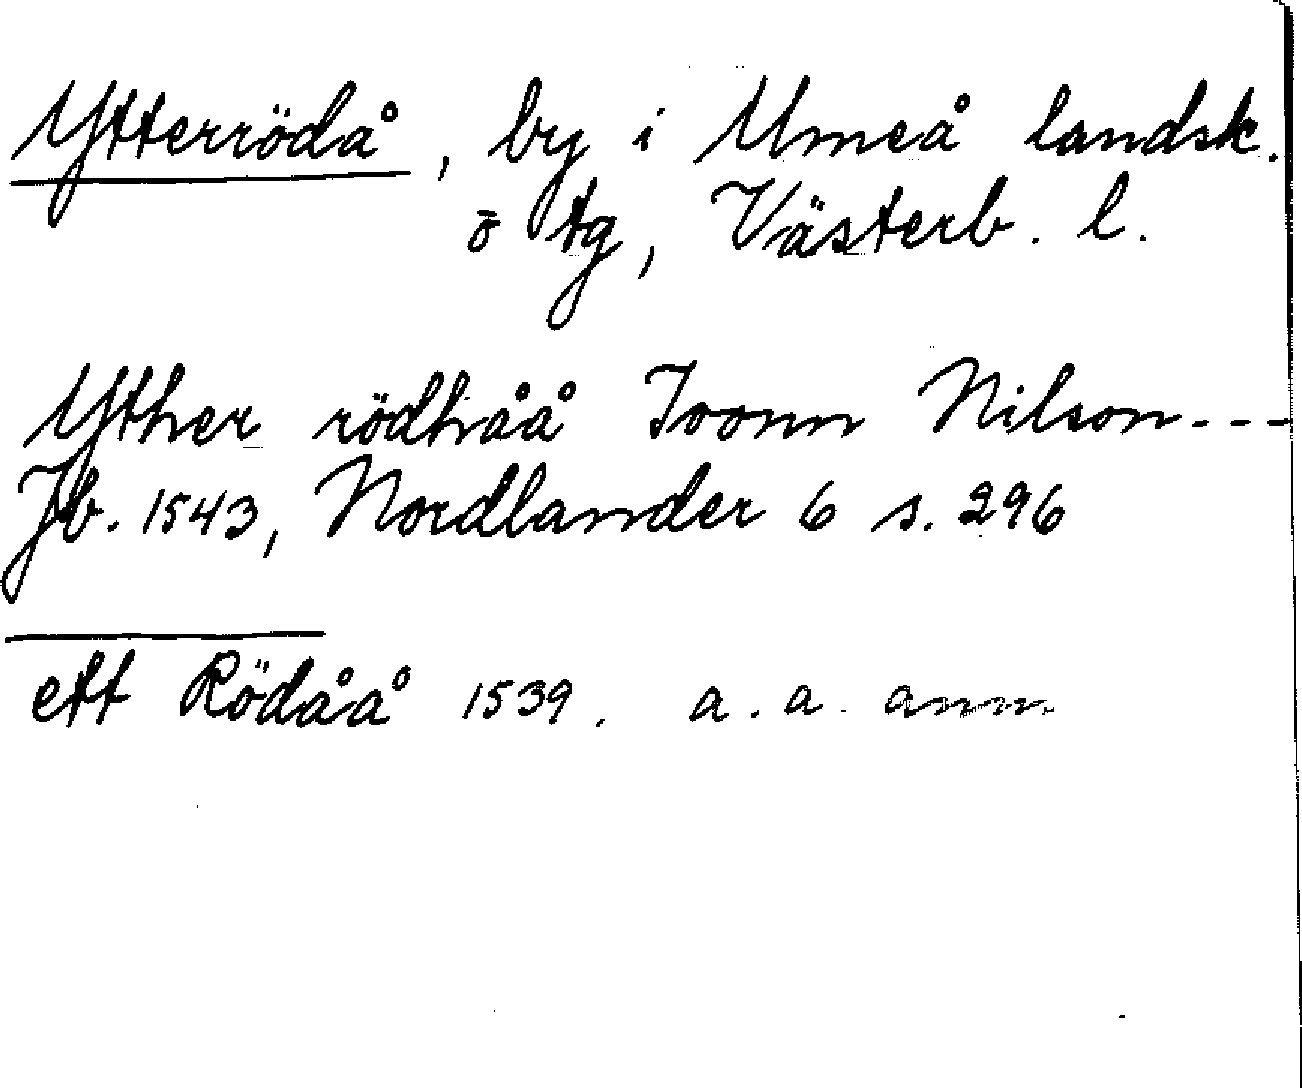 Ytterrödå, by i Umeå landsk.
o tg, Västerb. l.
Yther rödhåå Joonn Nilson---
Jb. 1543, Nordlander 6 s. 296
ett Rödåå 1539. a. a. anm.